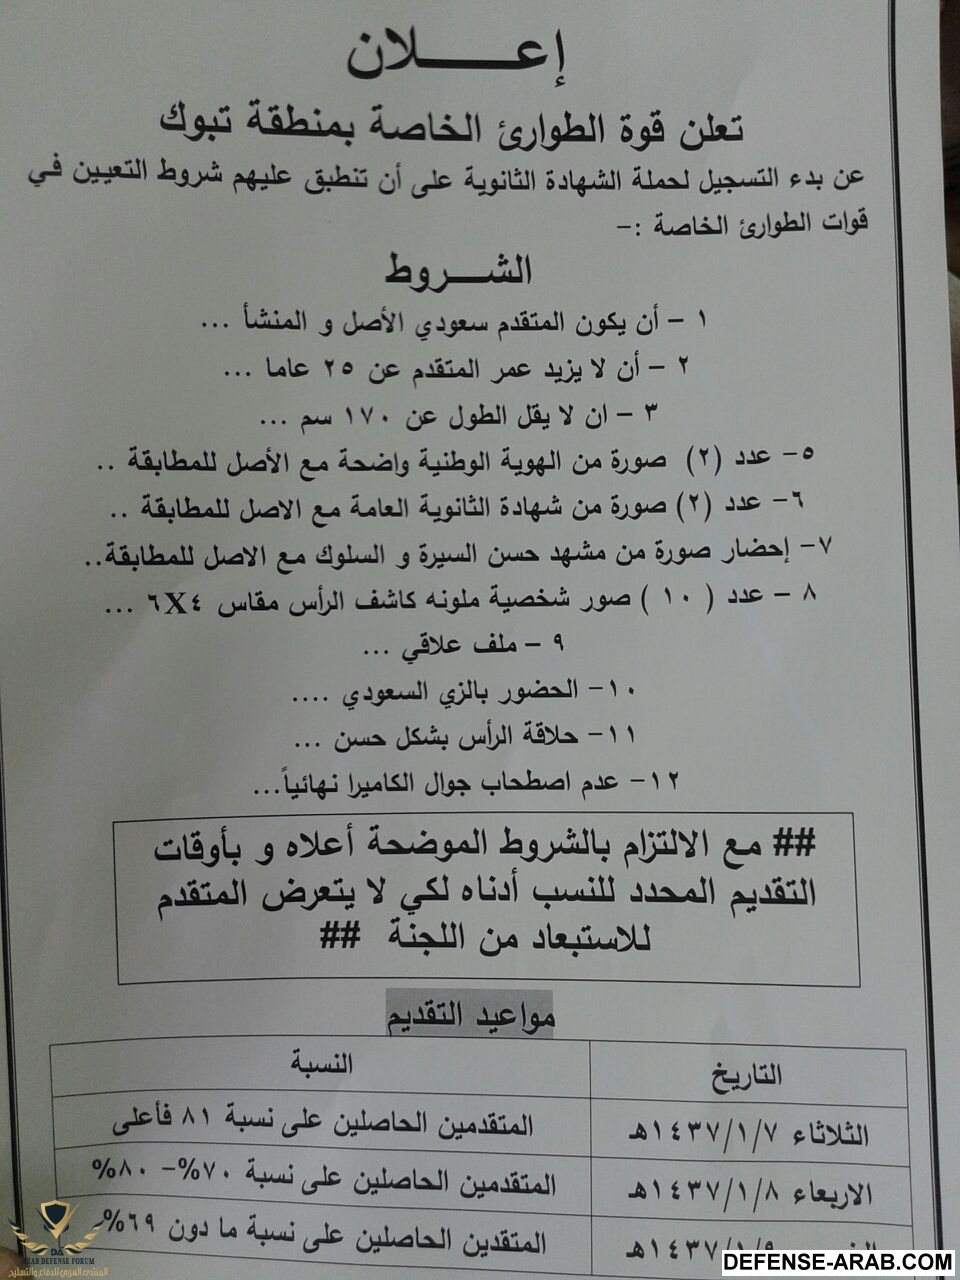 إعـــــلان
تعلن قوة الطوارئ الخاصة بمنطقة تبوك
عن بدء التسجيل لحملة الشهادة الثانوية على أن تنطبق عليهم شروط التعيين في
قوات الطوارئ الخاصة :-
الشـــروط
١ – أن يكون المتقدم سعودي الأصل و المنشأ ...
٢ – أن لا يزيد عمر المتقدم عن ٢٥ عاما ...
٣ – ان لا يقل الطول عن ١٧٠ سم ...
٥- عدد (٢) صورة من الهوية الوطنية واضحة مع الأصل للمطابقة ..
٦- عدد (٢) صورة من شهادة الثانوية العامة مع الاصل للمطابقة ..
٧- إحضار صورة من مشهد حسن السيرة و السلوك مع الاصل للمطابقة..
٨ – عدد ( ١٠ ) صور شخصية ملونه كاشف الرأس مقاس ٤X٦ ...
٩ – ملف علاقي ...
١٠- الحضور بالزي السعودي ....
١١- حلاقة الرأس بشكل حسن ...
١٢- عدم اصطحاب جوال الكاميرا نهائياً...
## مع الالتزام بالشروط الموضحة أعلاه و بأوقات
التقديم المحدد للنسب أدناه لكي لا يتعرض المتقدم
للاستبعاد من اللجنة ##
مواعيد التقديم
التاريخ النسبة
الثلاثاء ١٤٣٧/١/٧هـ المتقدمين الحاصلين على نسبة ٨١ فأعلى
الاربعاء ١٤٣٧/١/٨هـ المتقدمين الحاصلين على نسبة ٧٠%- ٨٠%
١٤٣٧/١/٩هـ المتقدين الحاصلين على نسبة ما دون ٦٩%
DA
ARAB DEFENSE FORUM
المنتدى العربي للدفاع والتسليح
DEFENSE-ARAB.COM